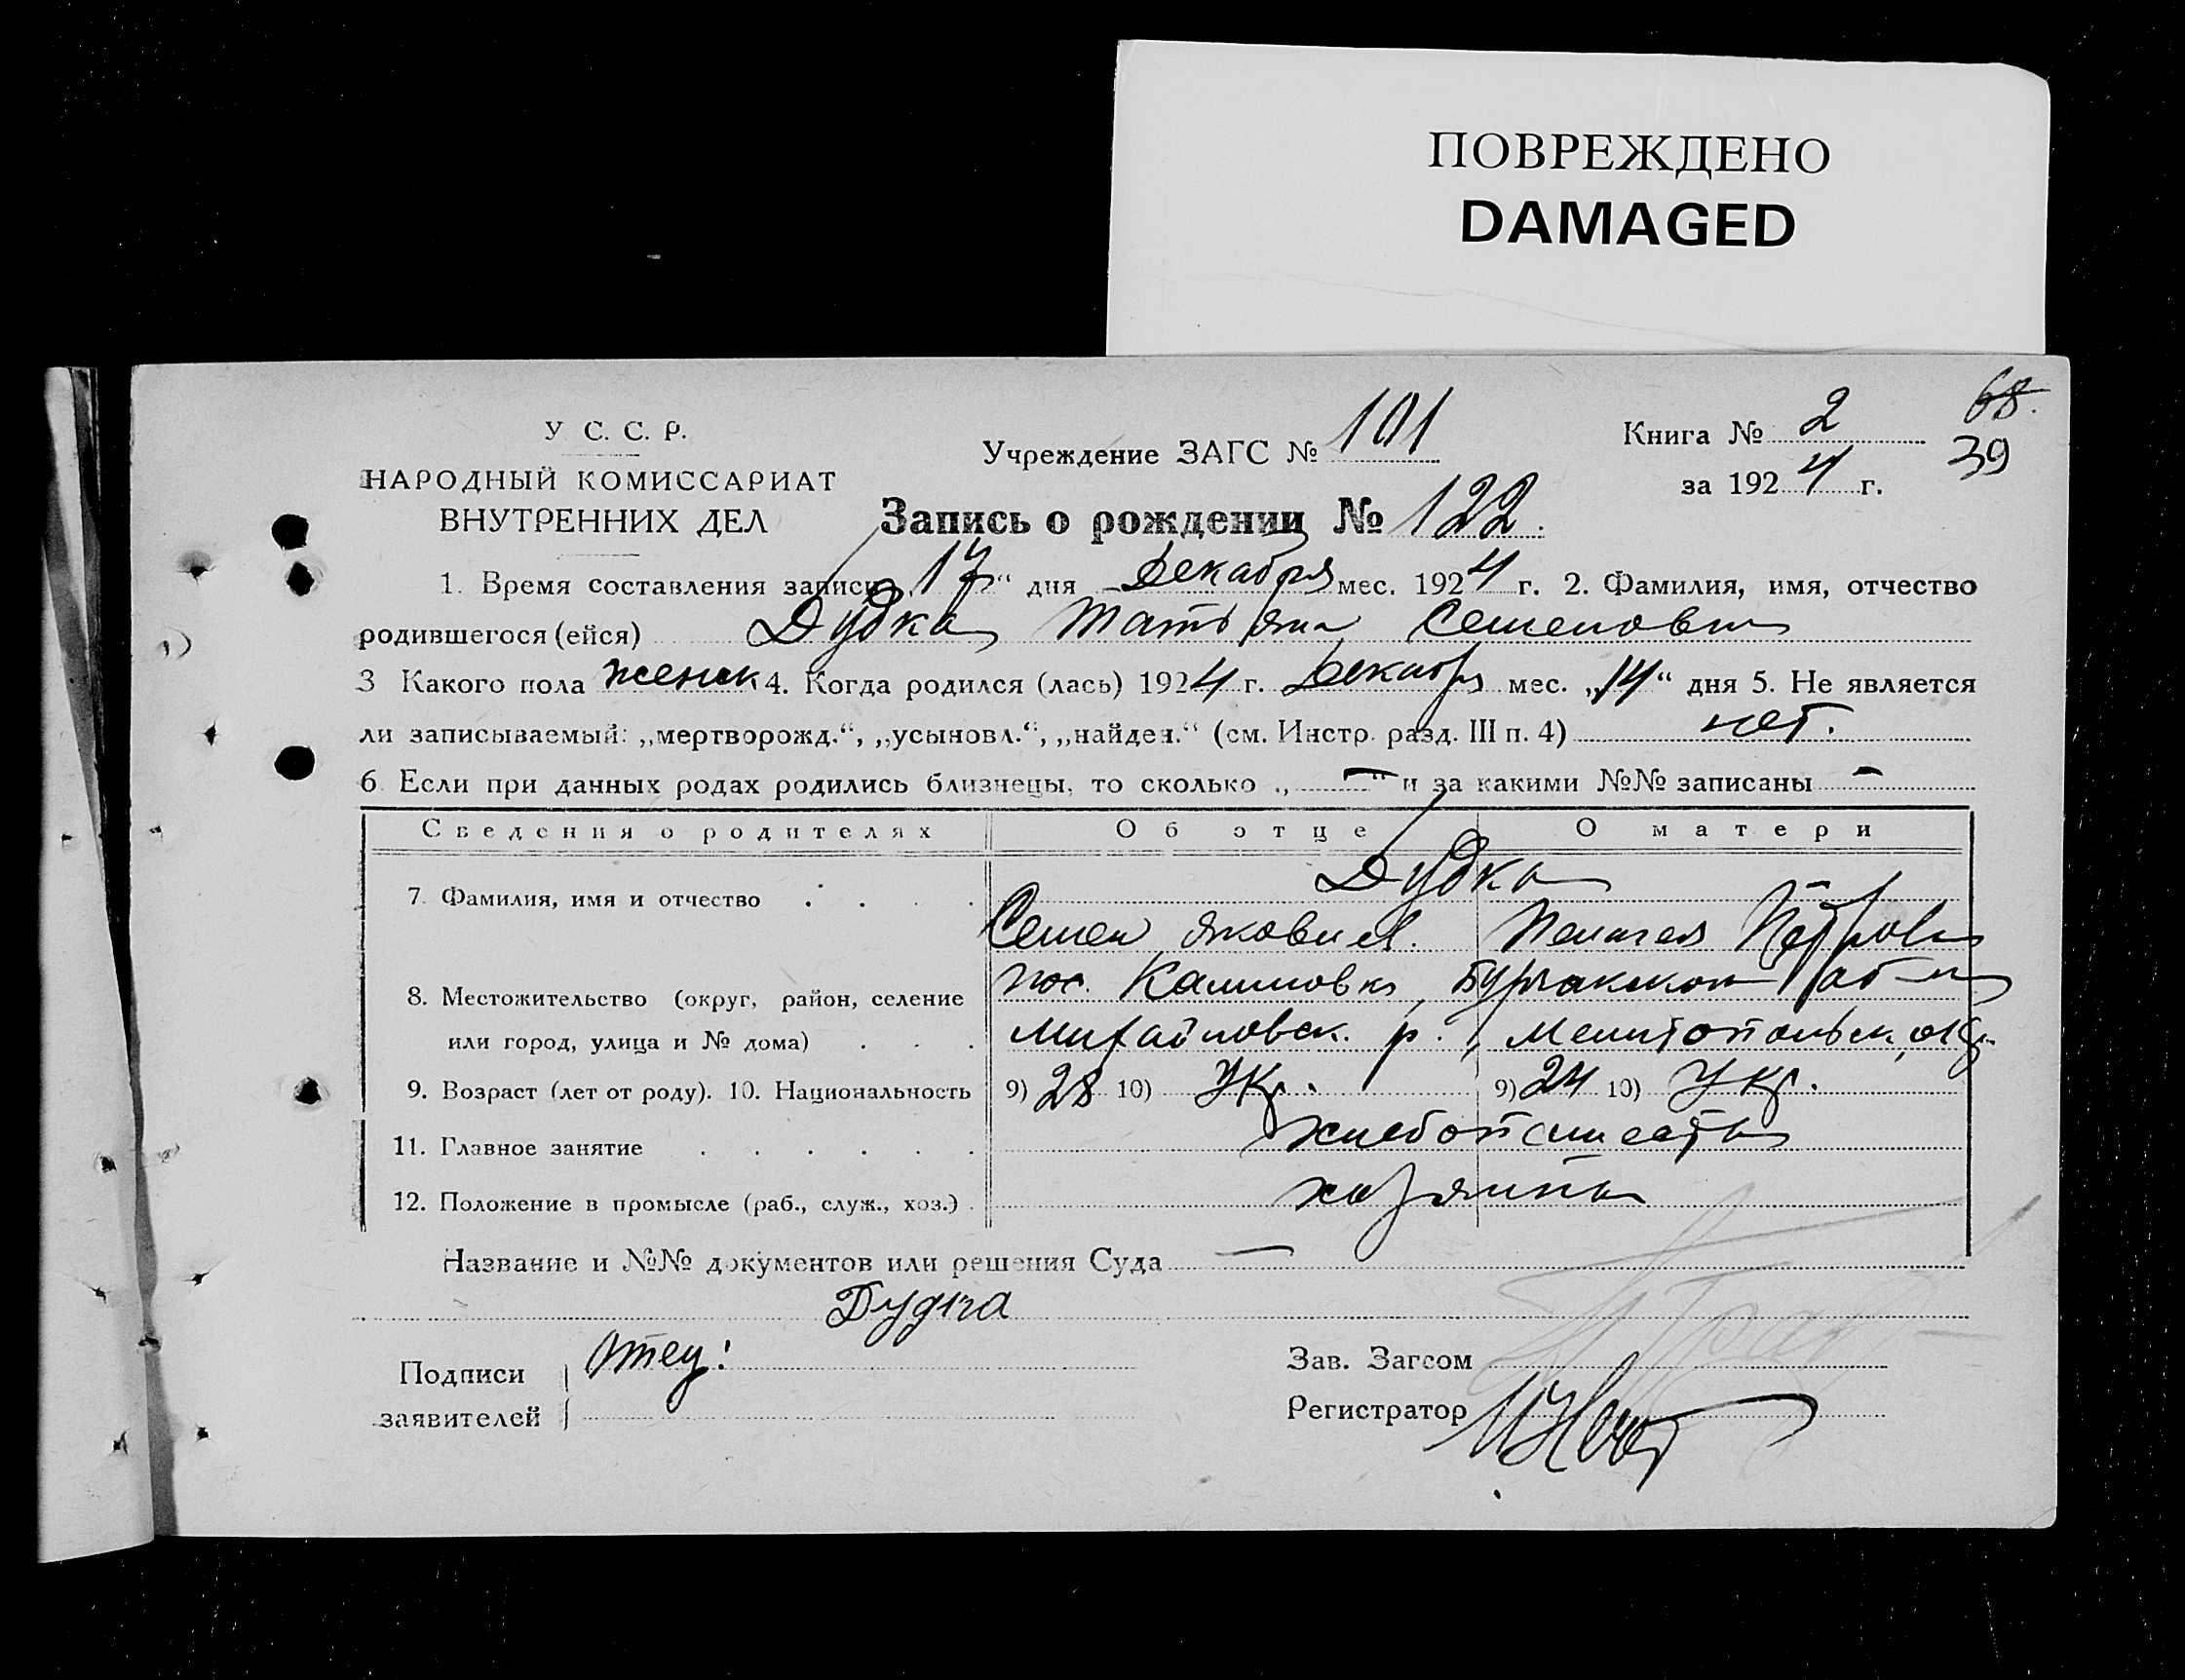 ПОВРЕЖДЕНО
DAMAGED
68.
39
У С. С. Р.
НАРОДНЫЙ КОМИССАРИАТ
ВНУТРЕННИХ ДЕЛ
Учреждение ЗАГС № 101
Книга № 2
за 1924 г.
Запись о рождении № 122.
1. Время составления записи „17“ дня Декабря мес. 1924 г. 2. Фамилия, имя, отчество
родившегося (ейся) Дудка Татьяна Семеновна
3 Какого пола женск 4. Когда родился (лась) 1924 г. Декабря мес. „14“ дня 5. Не является
ли записываемый: „мертворожд.“, „усыновл.“, „найден.“ (см. Инстр. разд. III п. 4) нет.
6. Если при данных родах родились близнецы, то сколько „—“ и за какими №№ записаны —
Сведения о родителях Об отце О матери
Дудка
7. Фамилия, имя и отчество . . . .
Семен Яковлев. Пелагея Петровна
8. Местожительство (округ, район, селение
пос. Калиновка,
или город, улица и № дома) . . .
Михайловск. р., Мелитопольск. окр.
9. Возраст (лет от роду). 10. Национальность 9) 28 10) Укр. 9) 24 10) Укр.
11. Главное занятие . . . . . . хлебопашество
12. Положение в промысле (раб., служ., хоз.) . хозяина
Название и №№ документов или решения Суда —
Дудка
Подписи
заявителей
Отец:
Зав. Загсом
Регистратор